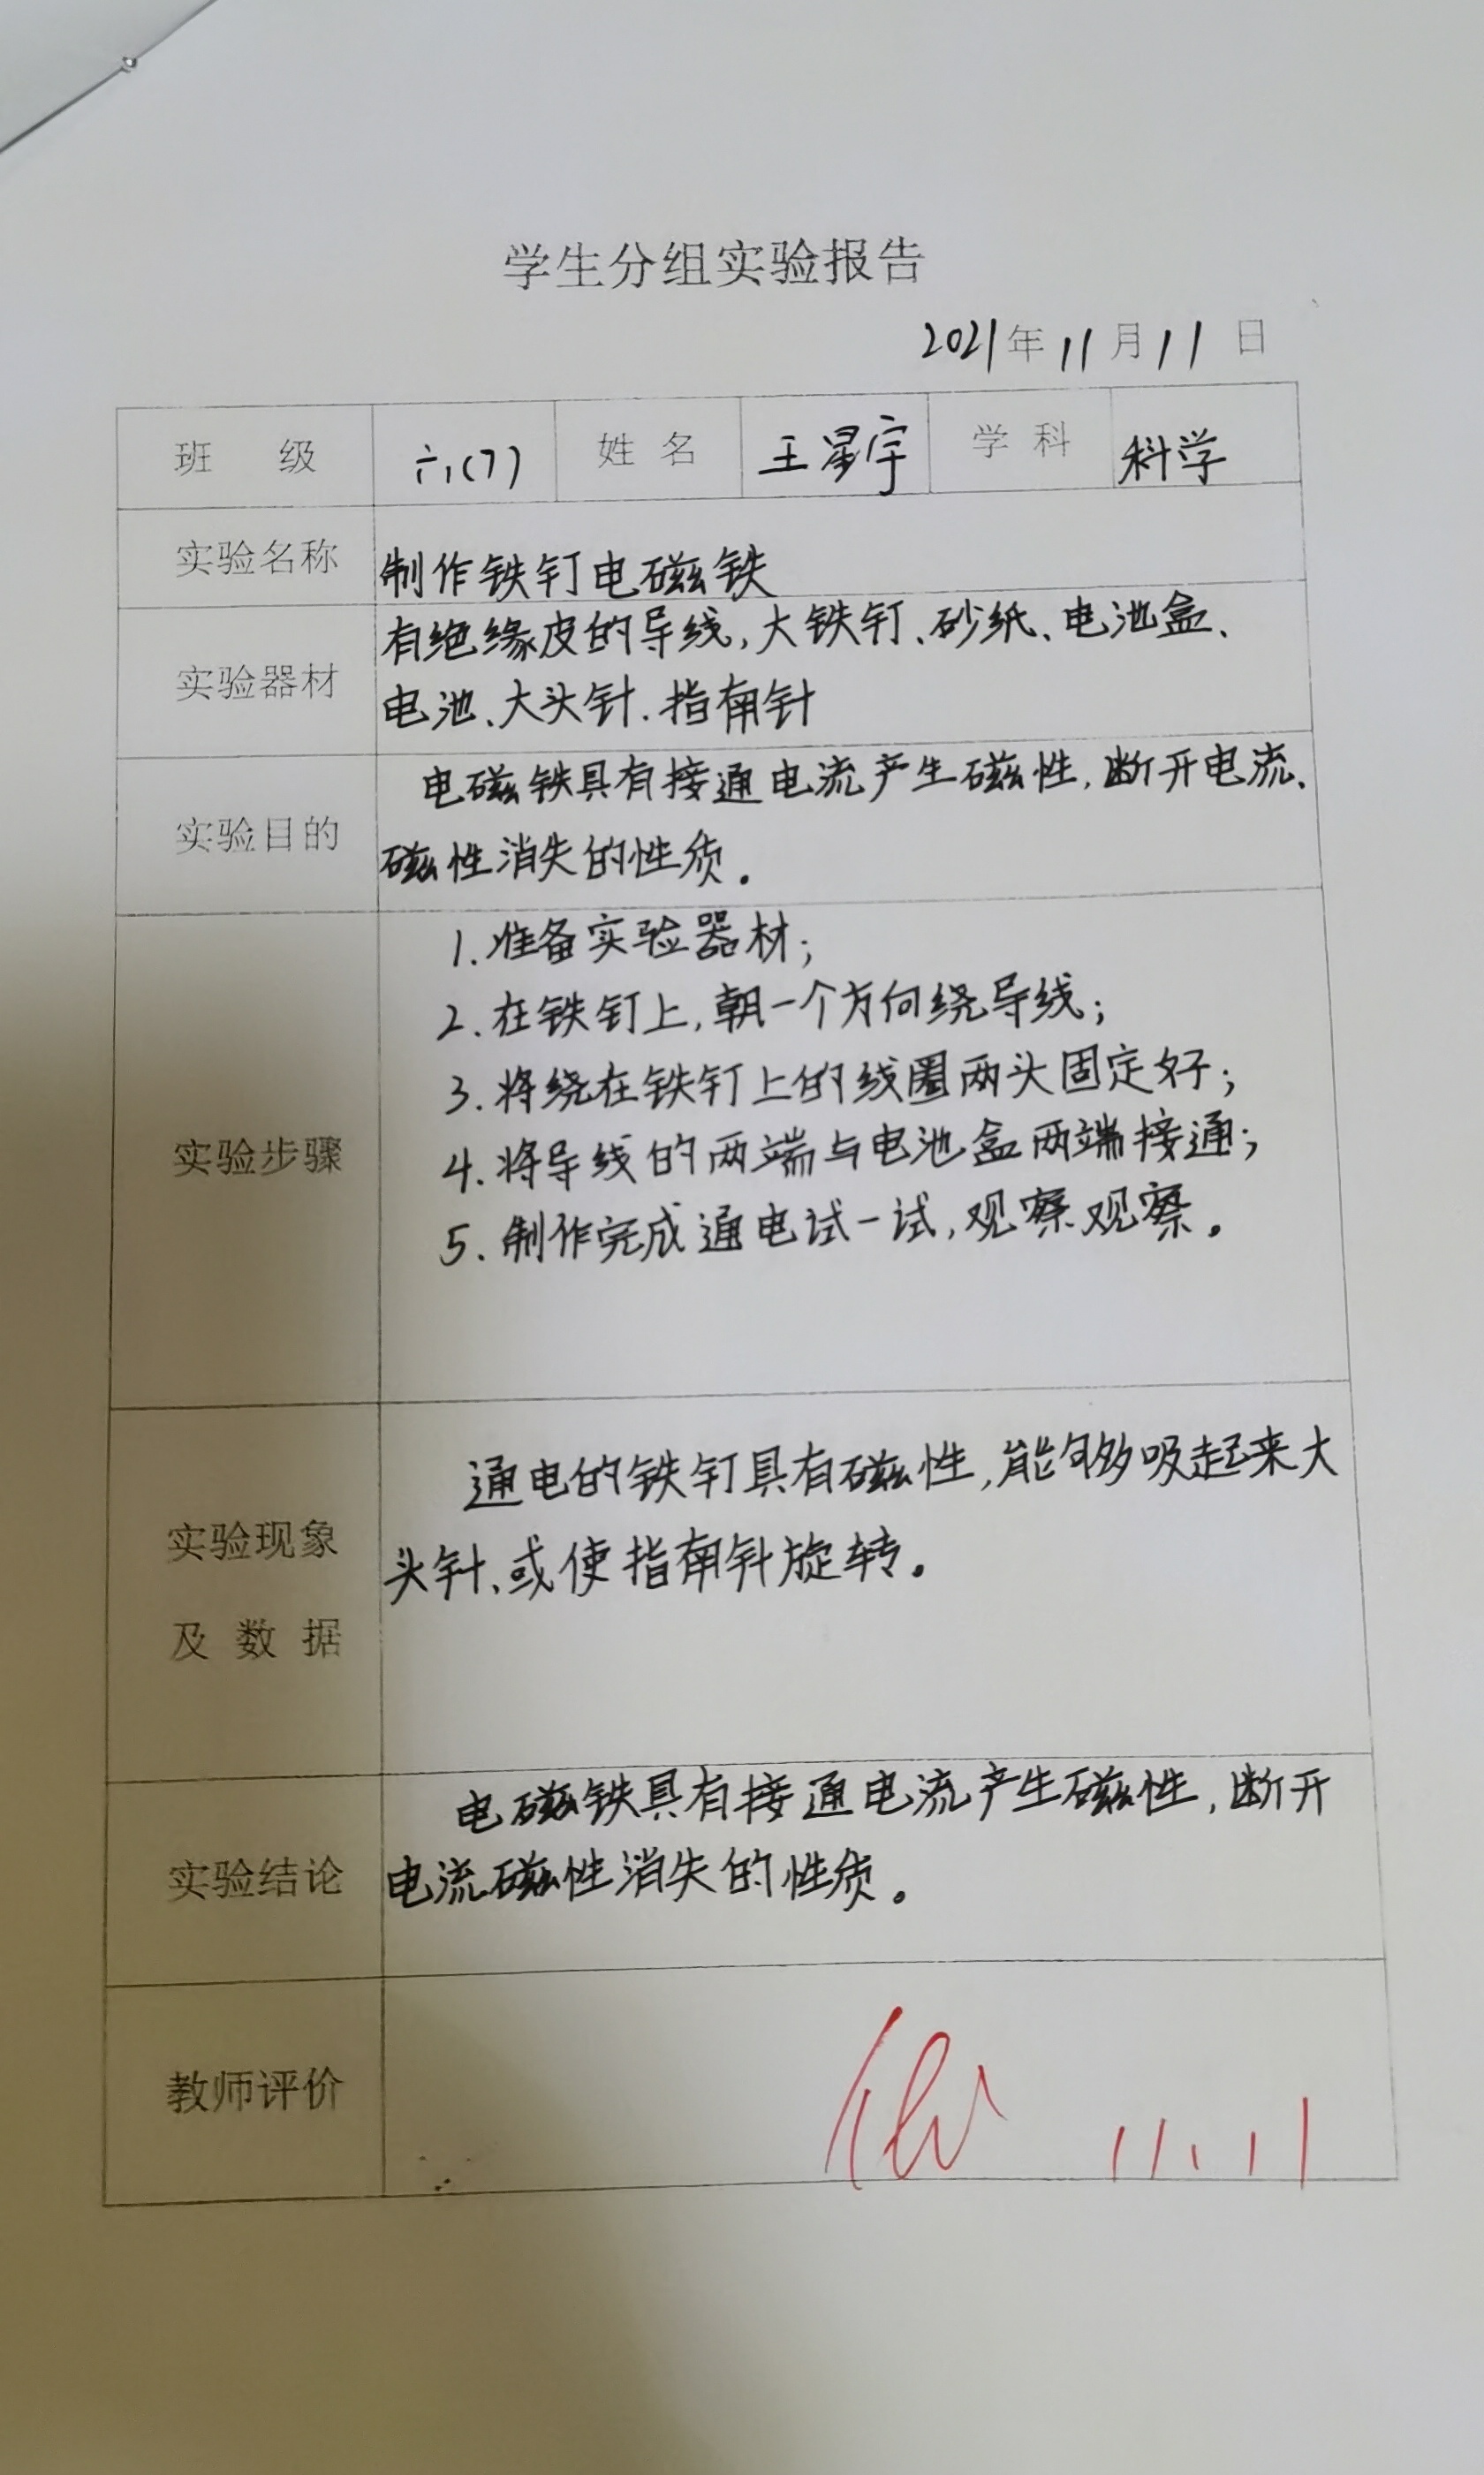 学生分组实验报告
2021年11月11日
班 级 六(7) 姓名 王星宇 学科 科学
实验名称 制作铁钉电磁铁
实验器材
有绝缘皮的导线,大铁钉、砂纸、电池盒、
电池、大头针.指南针
实验目的
电磁铁具有接通电流产生磁性,断开电流、
磁性消失的性质。
实验步骤
1.准备实验器材;
2.在铁钉上,朝一个方向绕导线;
3.将绕在铁钉上的线圈两头固定好;
4.将导线的两端与电池盒两端接通;
5.制作完成通电试一试,观察观察。
实验现象
及数据
通电的铁钉具有磁性,能够吸起来大
头针、或使指南针旋转。
实验结论
电磁铁具有接通电流产生磁性,断开
电流磁性消失的性质。
教师评价
11.11